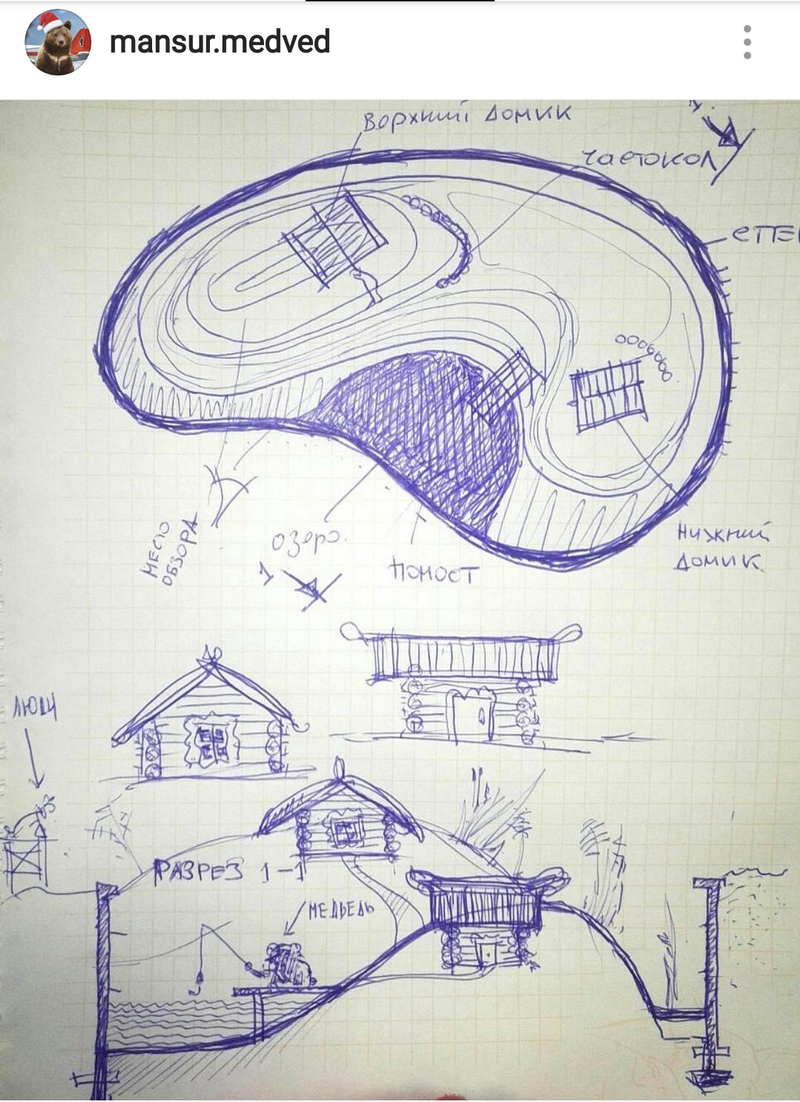 mansur.medved
ВЕРХНИЙ ДОМИК
ЧАСТОКОЛ
СТЕ
МЕСТО
ОБЗОРА
ОЗЕРО.
1
ПОМОСТ
НИЖНИЙ
ДОМИК.
ЛЮДИ
РАЗРЕЗ 1-1
МЕДВЕДЬ